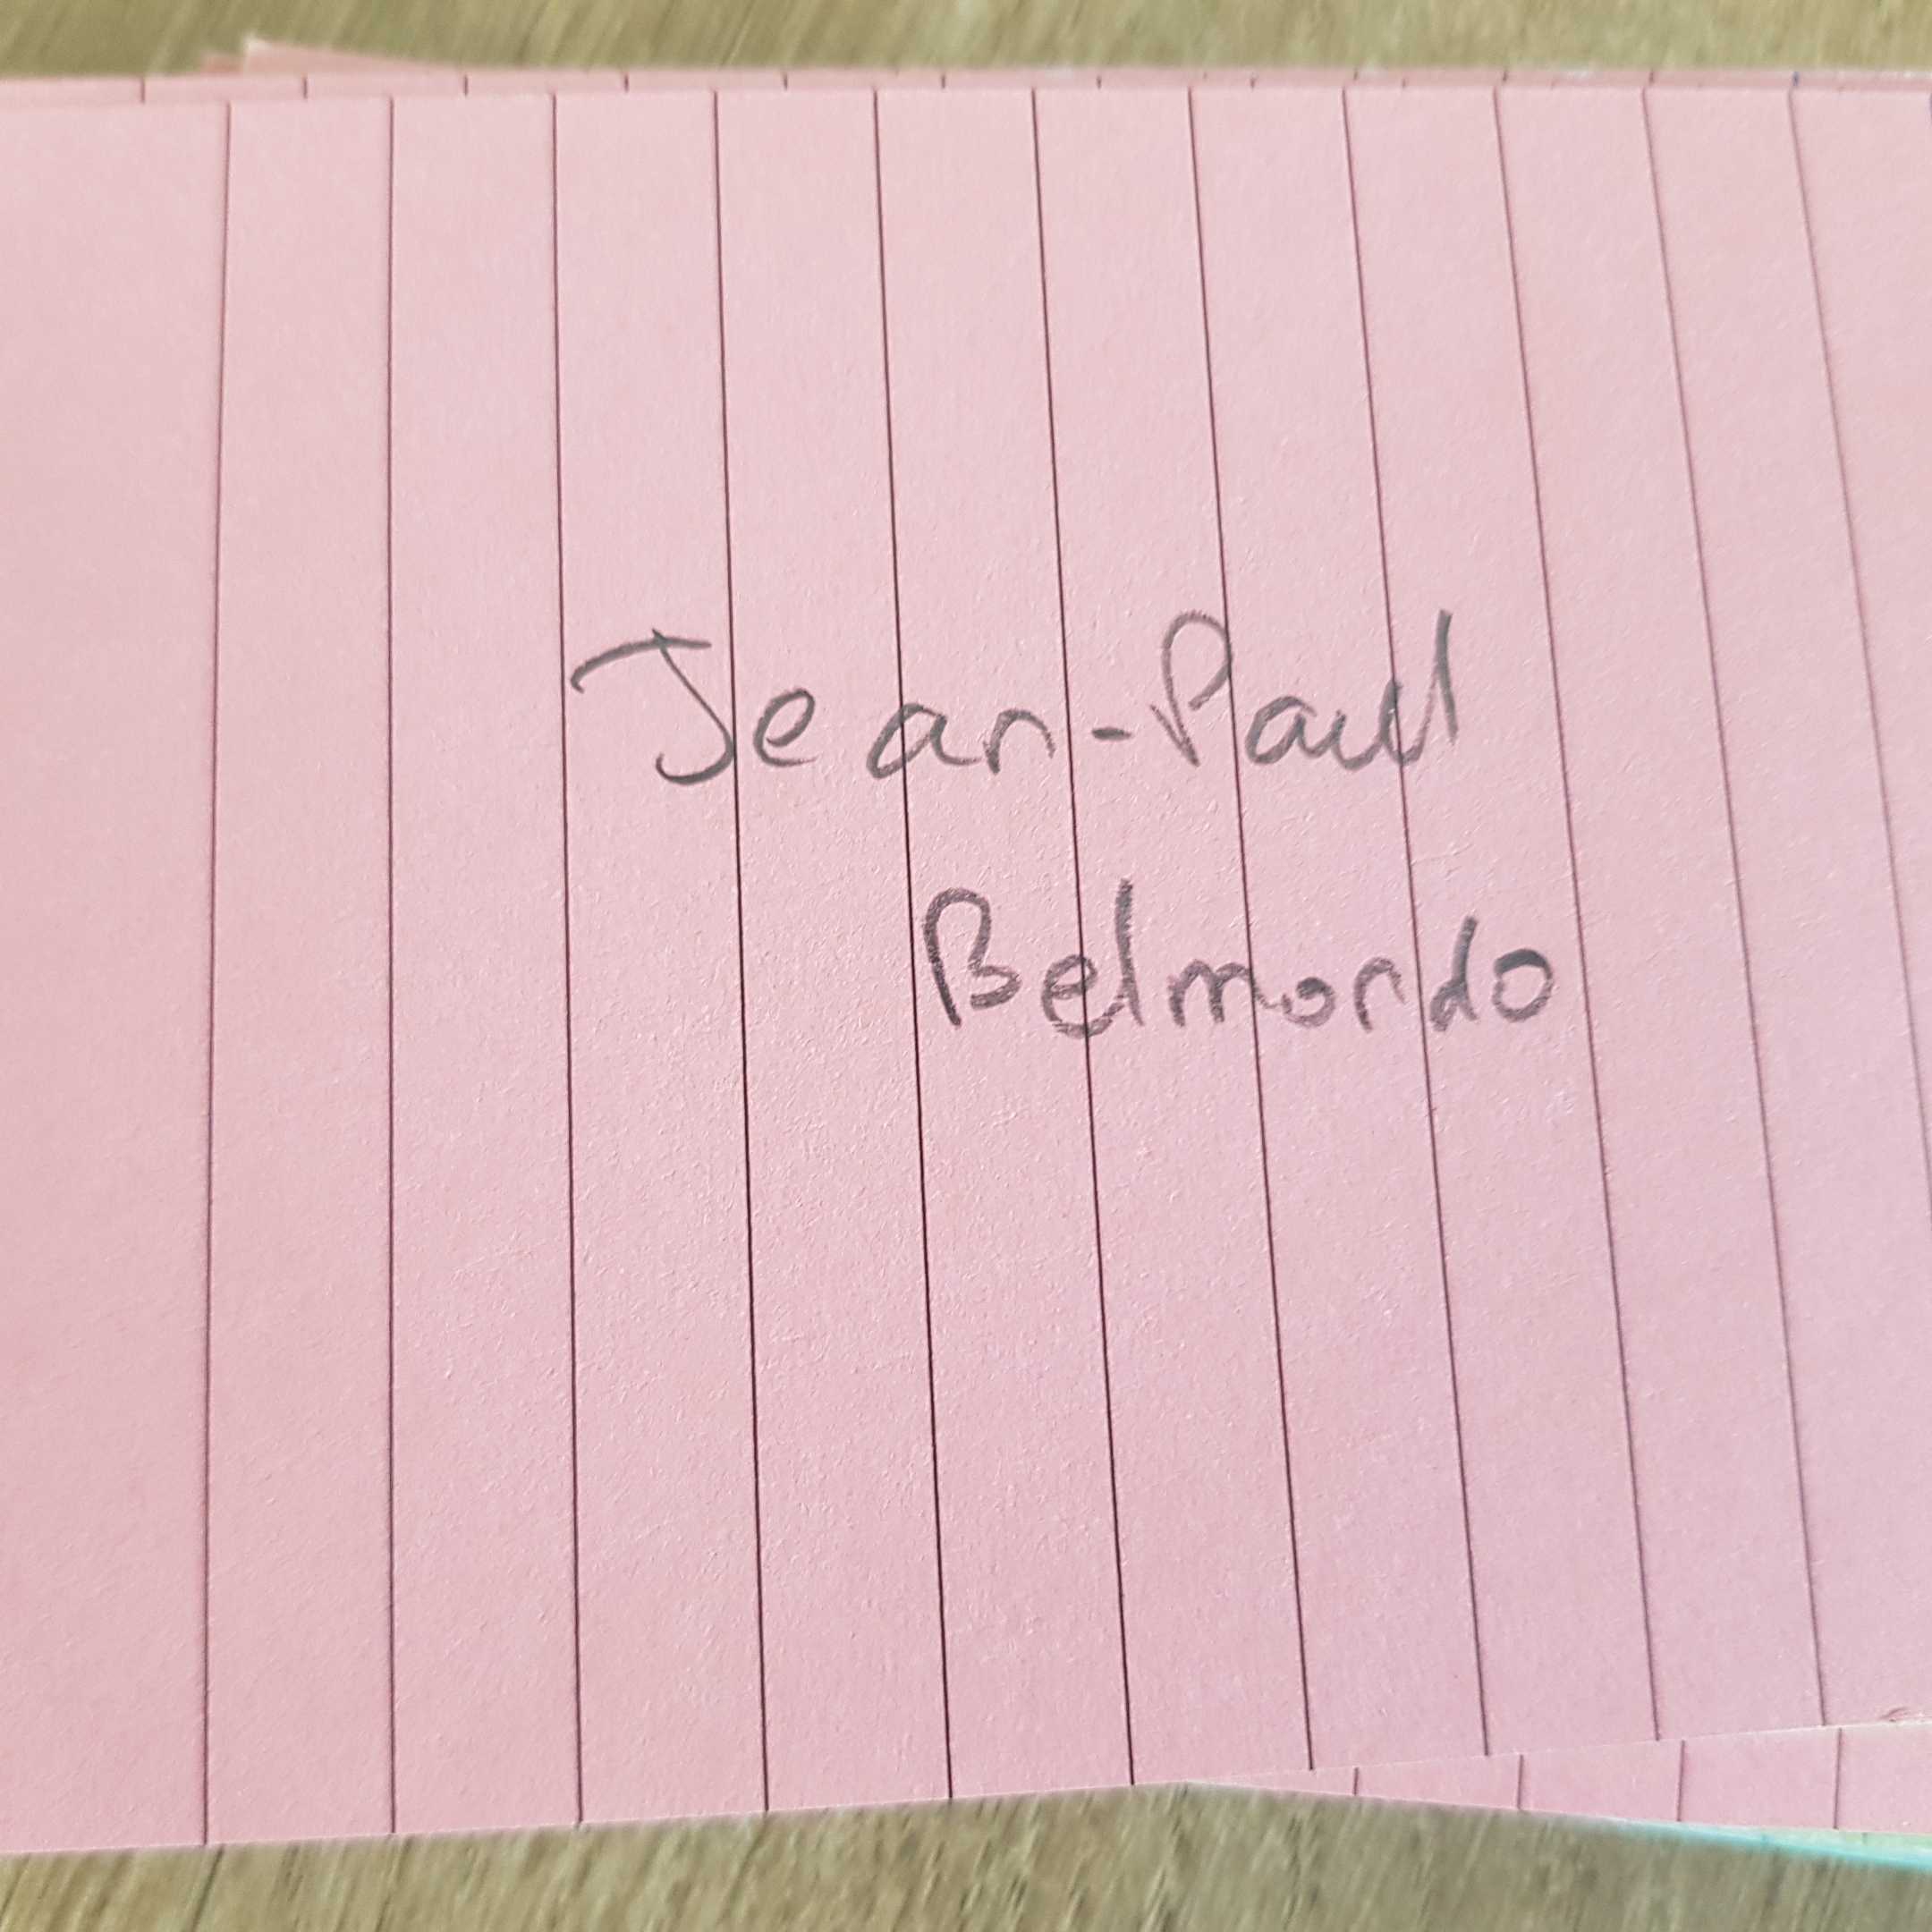 Jean-Paul
Belmondo